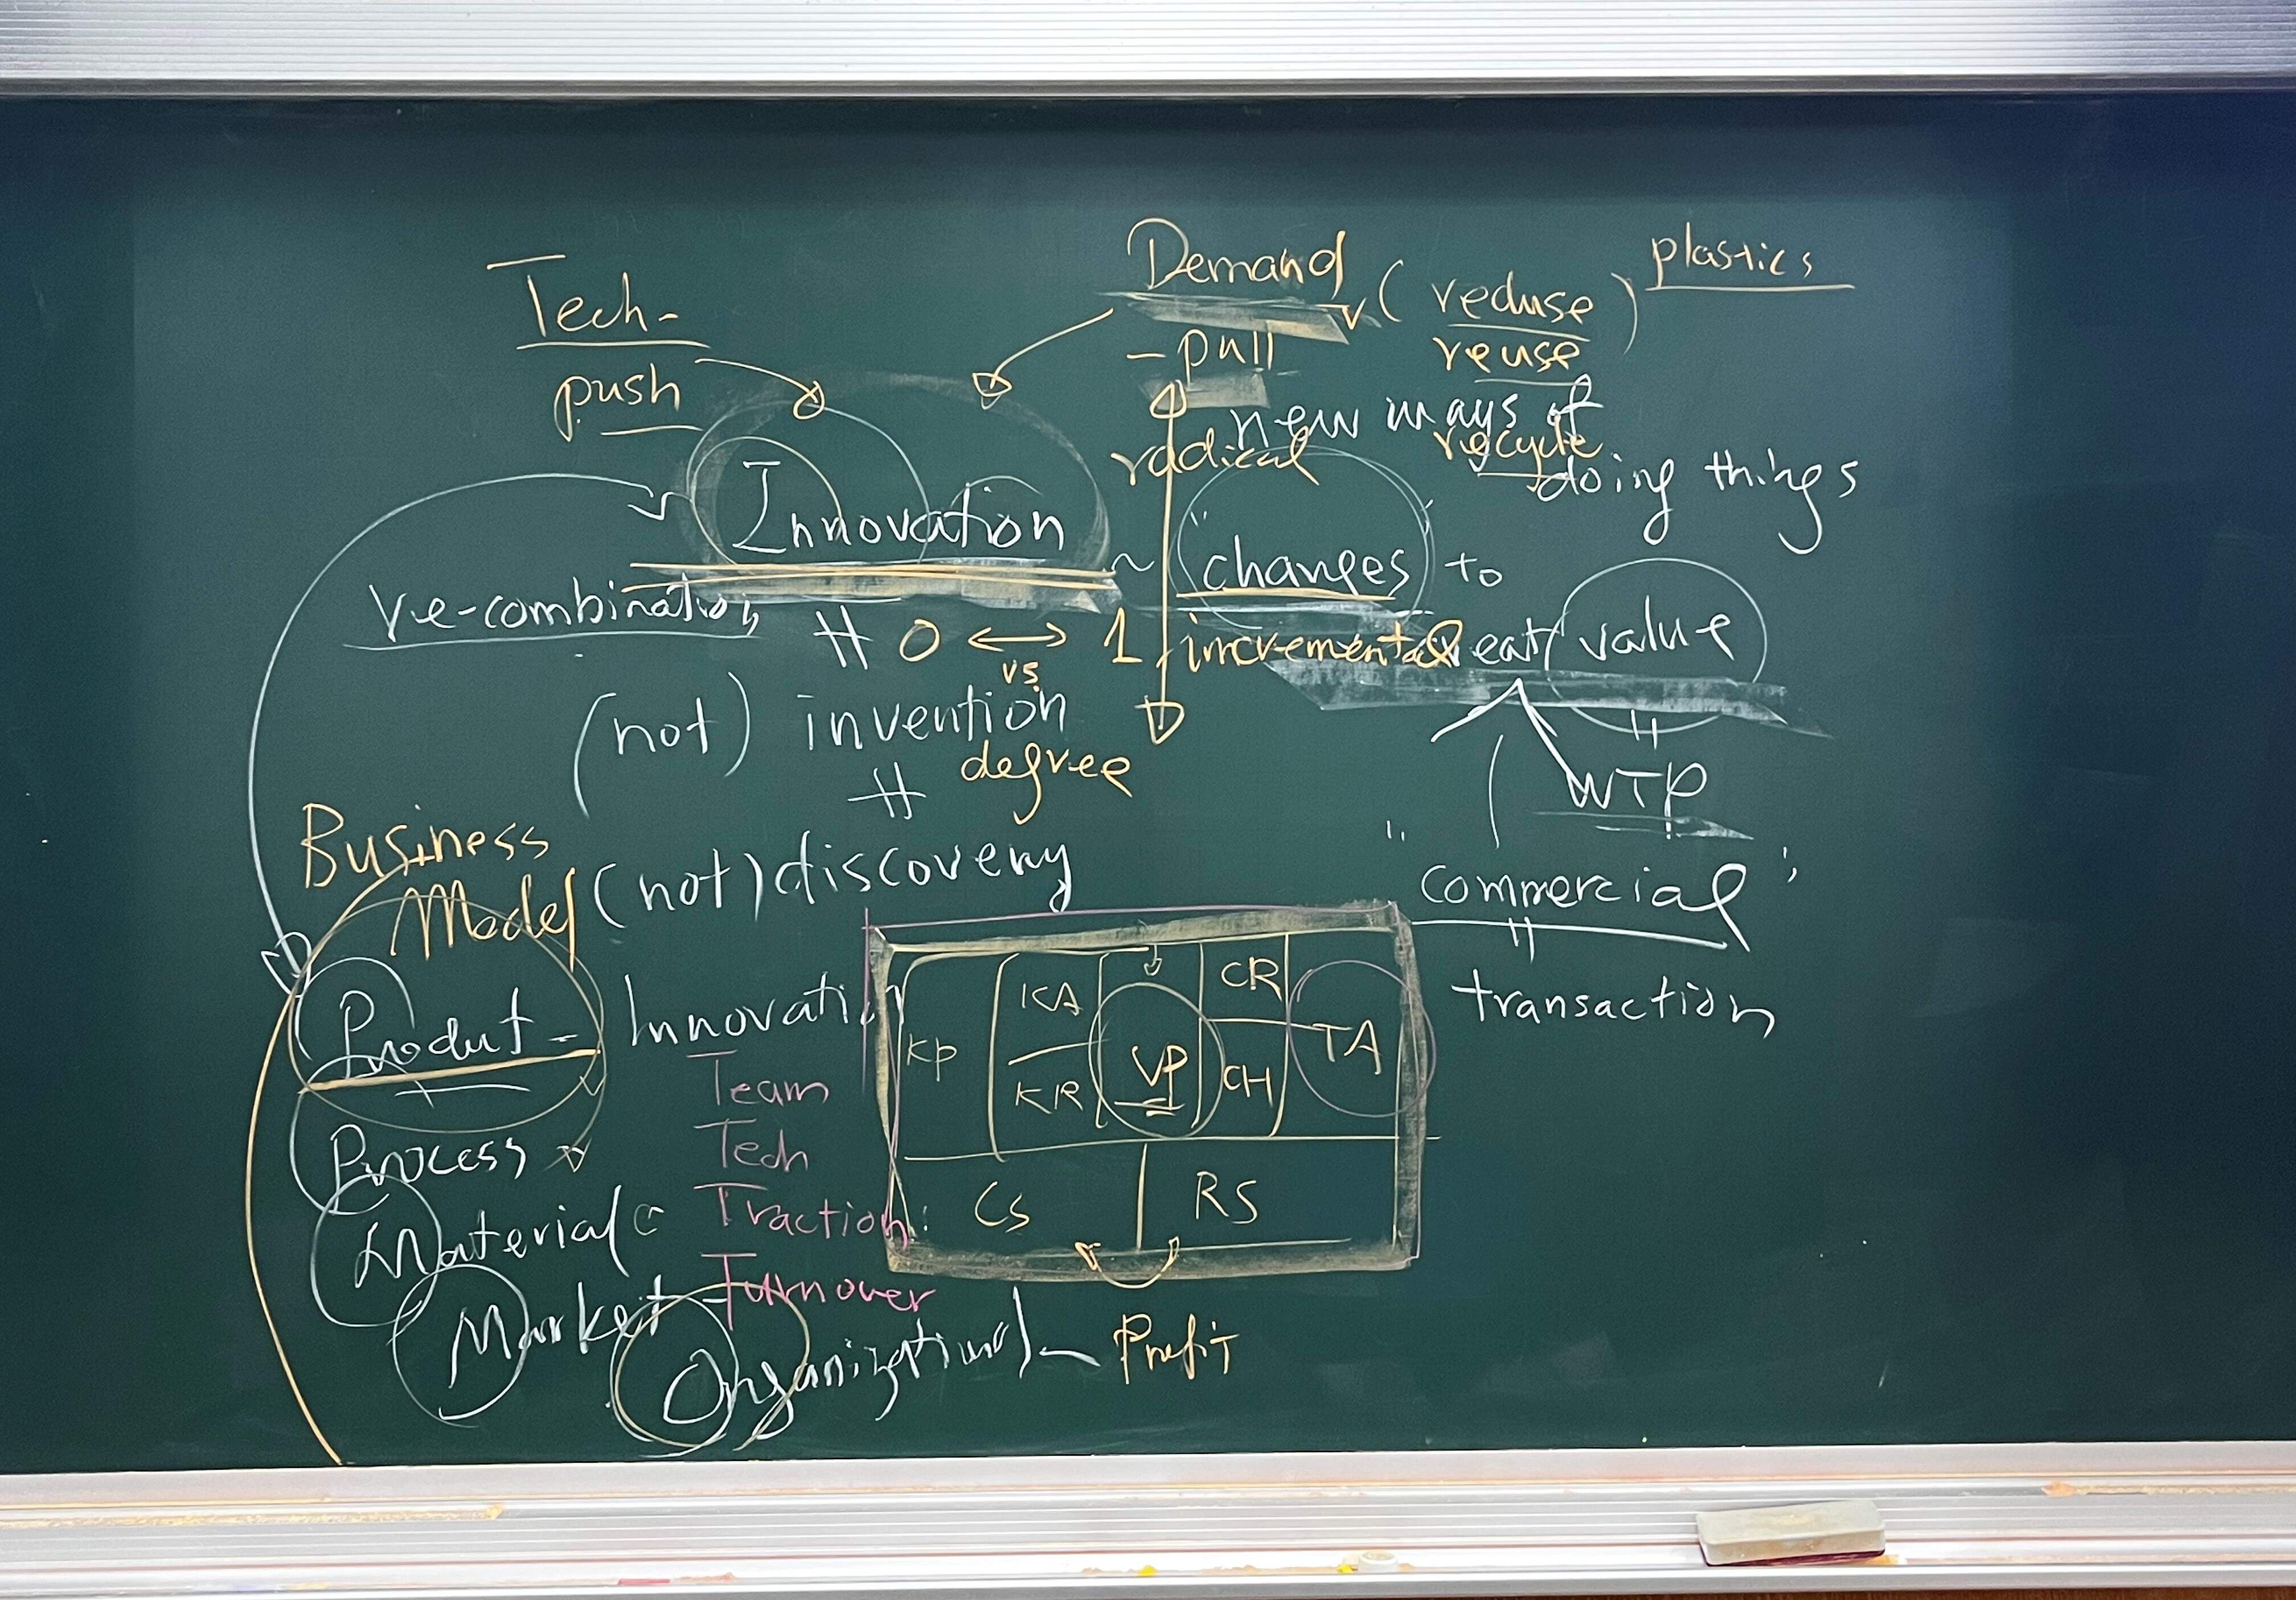 Tech-
push
Demand
- pull
( reduse )
reuse
recycle
plastics
new ways of
doing things
radical
Innovation ~ "changes" to
re-combination
# 0 <-> 1
vs
incremental
creat value
(not) invention
degree
#
(not) discovery
=
WTP
"commercial"
=
transaction
Business
Model
Product - Innovation
Process
Material
Market
Organizational
Team
Tech
Traction
Turnover
KP
KA
KR
VP
CR
CH
TA
Cs
RS
Profit